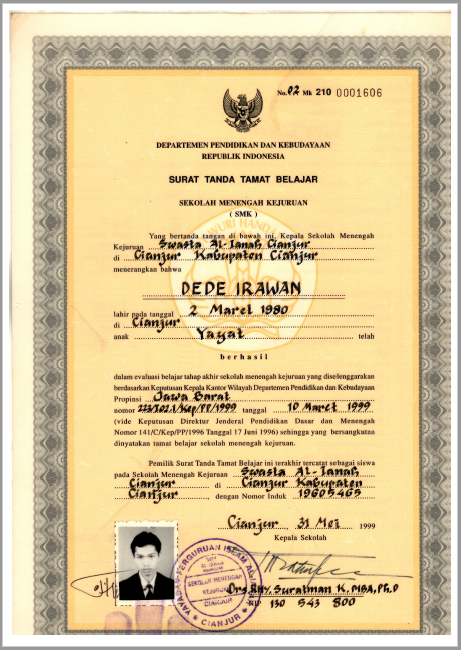 No. 02 Mk 210 0001606
DEPARTEMEN PENDIDIKAN DAN KEBUDAYAAN
REPUBLIK INDONESIA
SURAT TANDA TAMAT BELAJAR
SEKOLAH MENENGAH KEJURUAN
( SMK )
Yang bertanda tangan di bawah ini, Kepala Sekolah Menengah
Kejuruan Swasta Al-Ianah Cianjur
di Cianjur Kabupaten Cianjur
menerangkan bahwa
DEDE IRAWAN
lahir pada tanggal 2 Maret 1980
di Cianjur
anak Yayat telah
berhasil
dalam evaluasi belajar tahap akhir sekolah menengah kejuruan yang diselenggarakan
berdasarkan Keputusan Kepala Kantor Wilayah Departemen Pendidikan dan Kebudayaan
Propinsi Jawa Barat
nomor tanggal 10 Maret 1999
(vide Keputusan Direktur Jenderal Pendidikan Dasar dan Menengah
Nomor 141/C/Kep/PP/1996 Tanggal 17 Juni 1996) sehingga yang bersangkutan
dinyatakan tamat belajar sekolah menengah kejuruan.
Pemilik Surat Tanda Tamat Belajar ini terakhir tercatat sebagai siswa
pada Sekolah Menengah Kejuruan Swasta Al-Ianah
Cianjur di Cianjur Kabupaten
Cianjur, dengan Nomor Induk 19605465
Cianjur, 31 Mei 1999
Kepala Sekolah
YAYASAN PERGURUAN ISLAM
SEKOLAH MENENGAH
KEJURUAN
CIANJUR
CIANJUR
Suratman K, MBA, Ph.D
NIP 130 543 800